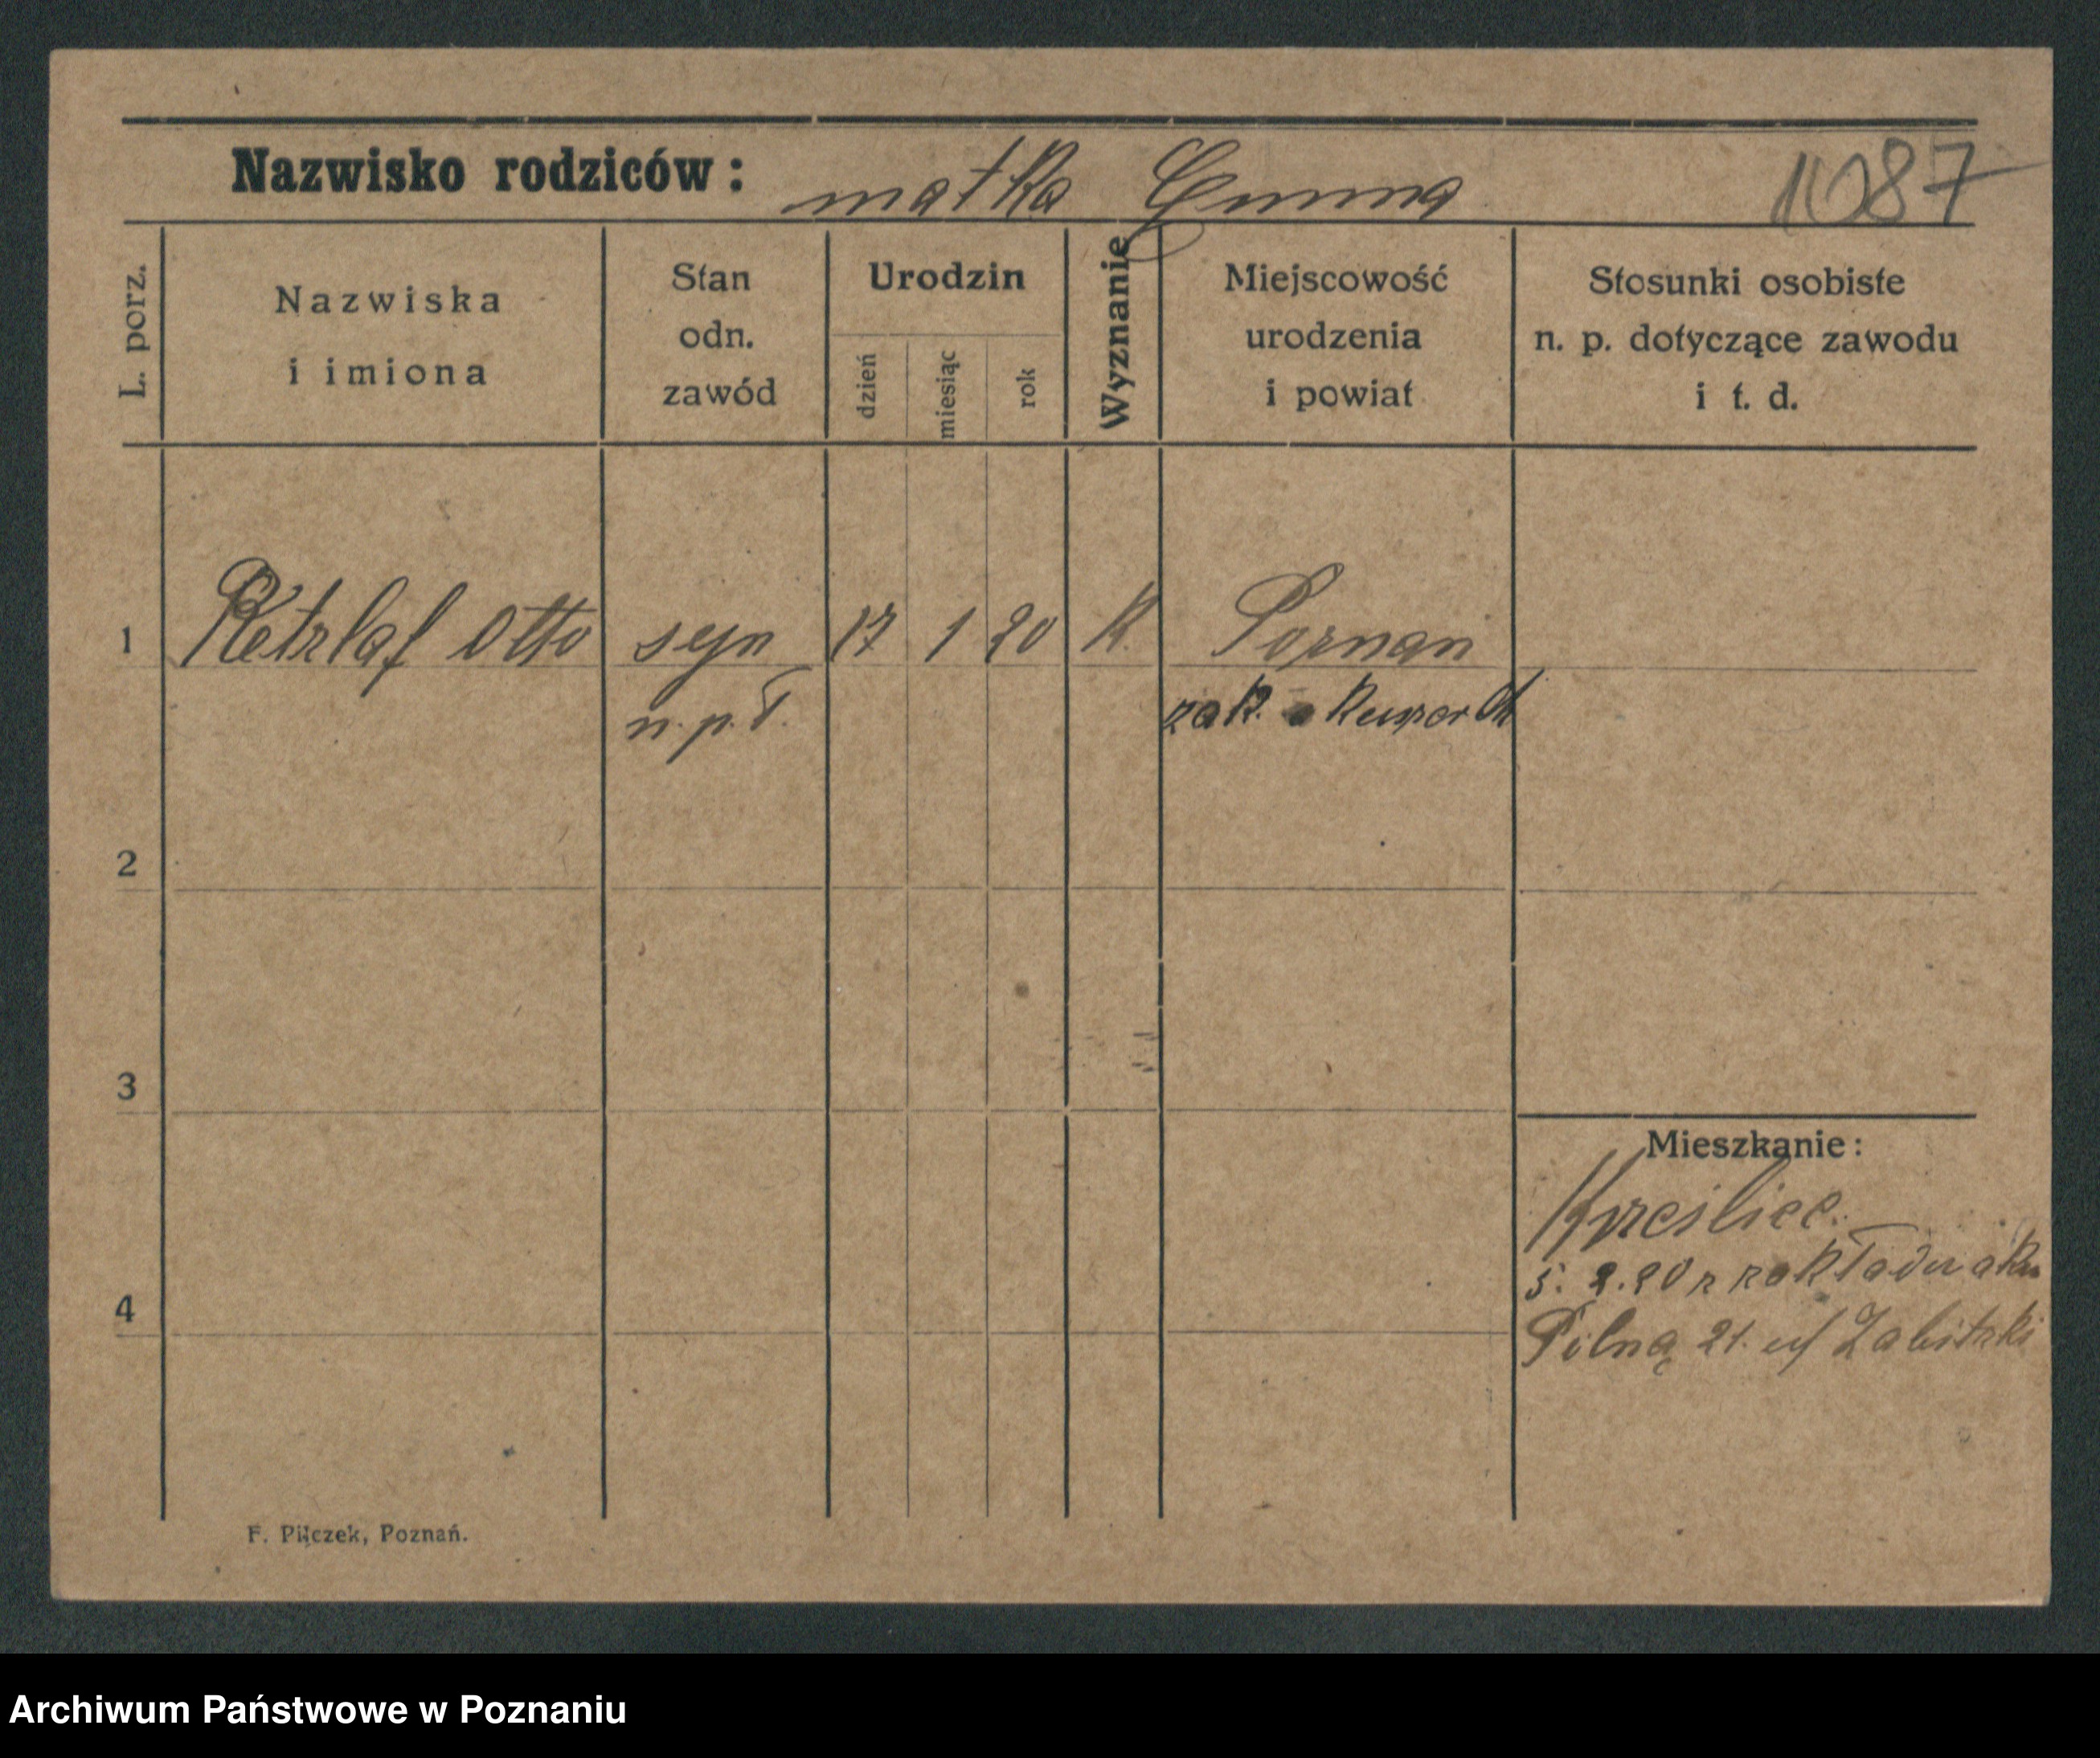 Nazwisko rodziców: matka Emma 1087
L. porz.
Nazwiska
i imiona
Stan
odn.
zawód
Urodzin
dzień
miesiąc
rok
Wyznanie
Miejscowość
urodzenia
i powiat
Stosunki osobiste
n. p. dotyczące zawodu
i t. d.
1 Retzlaf Otto syn 17 1 20 K. Poznań
n. p. ł. zak.
2
3
4
Mieszkanie:
5. 2. 20 z zakładu aku
Polną 21.
F. Pilczek, Poznań.
Archiwum Państwowe w Poznaniu